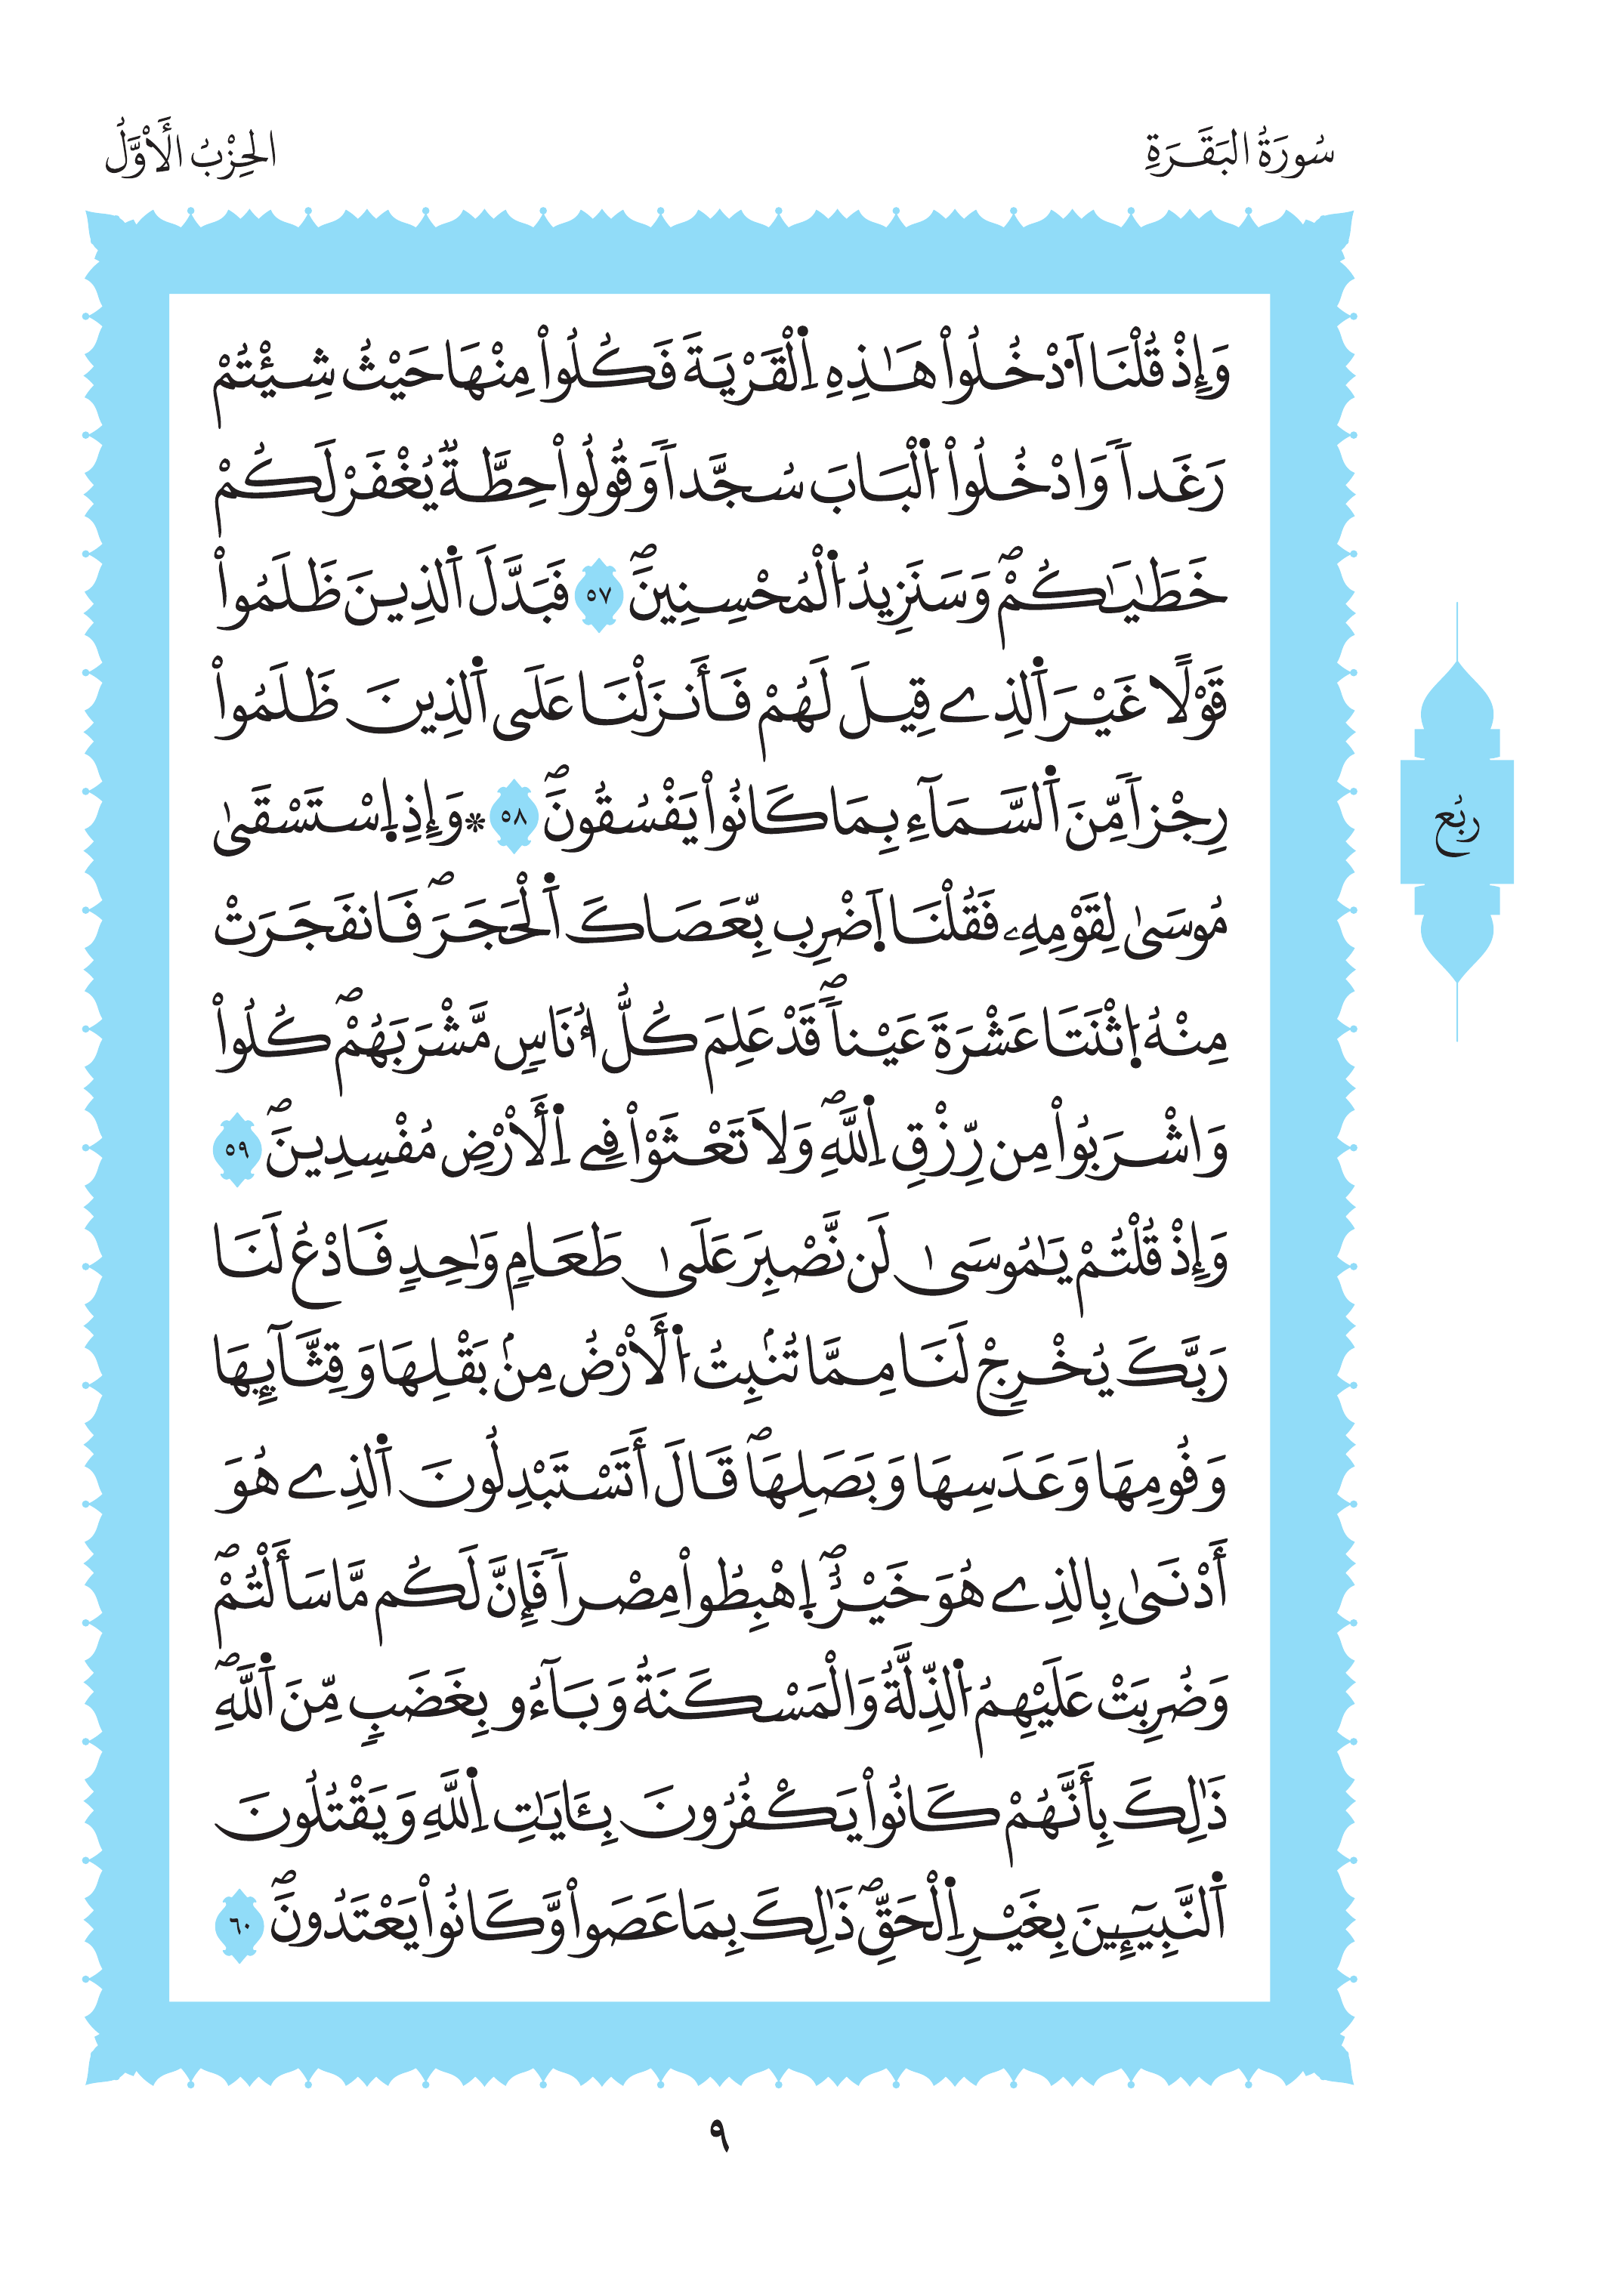 سُورَةُ الْبَقَرَةِ
الحِزْبُ الْأَوَّلُ
وَإِذْ قُلْنَا اَ۟دْخُلُواْ هَٰذِهِ اِ۬لْقَرْيَةَ فَكُلُواْ مِنْهَا حَيْثُ شِئْتُمْ
رَغَداٗ وَادْخُلُواْ اُ۬لْبَابَ سُجَّداٗ وَقُولُواْ حِطَّةٞ يُغْفَرْ لَكُمْ
خَطَٰيَٰكُمْۖ وَسَنَزِيدُ اُ۬لْمُحْسِنِينَۖ ٥٧ فَبَدَّلَ اَ۬لذِينَ ظَلَمُواْ
قَوْلًا غَيْرَ اَ۬لذِے قِيلَ لَهُمْ فَأَنزَلْنَا عَلَى اَ۬لذِينَ ظَلَمُواْ
رِجْزاٗ مِّنَ اَ۬لسَّمَآءِ بِمَا كَانُواْ يَفْسُقُونَۖ ٥٨ ۞وَإِذِ اِ۪سْتَسْقَىٰ
مُوسَىٰ لِقَوْمِهِۦ فَقُلْنَا اَ۪ضْرِب بِّعَصَاكَ اَ۬لْحَجَرَۖ فَانفَجَرَتْ
مِنْهُ اُ۪ثْنَتَا عَشْرَةَ عَيْناٗۖ قَدْ عَلِمَ كُلُّ أُنَاسٖ مَّشْرَبَهُمْۖ كُلُواْ
وَاشْرَبُواْ مِن رِّزْقِ اِ۬للَّهِۖ وَلَا تَعْثَوْاْ فِے اِ۬لْأَرْضِ مُفْسِدِينَۖ ٥٩
وَإِذْ قُلْتُمْ يَٰمُوسَىٰ لَن نَّصْبِرَ عَلَىٰ طَعَامٖ وَٰحِدٖ فَادْعُ لَنَا
رَبَّكَ يُخْرِجْ لَنَا مِمَّا تُنۢبِتُ اُ۬لْأَرْضُ مِنۢ بَقْلِهَا وَقِثَّآئِهَا
وَفُومِهَا وَعَدَسِهَا وَبَصَلِهَاۖ قَالَ أَتَسْتَبْدِلُونَ اَ۬لذِے هُوَ
أَدْنَىٰ بِالذِے هُوَ خَيْرٌۖ اِ۪هْبِطُواْ مِصْراٗ فَإِنَّ لَكُم مَّا سَأَلْتُمْۖ
وَضُرِبَتْ عَلَيْهِمُ اُ۬لذِّلَّةُ وَالْمَسْكَنَةُ وَبَآءُو بِغَضَبٖ مِّنَ اَ۬للَّهِۖ
ذَٰلِكَ بِأَنَّهُمْ كَانُواْ يَكْفُرُونَ بِـَٔايَٰتِ اِ۬للَّهِ وَيَقْتُلُونَ
اَ۬لنَّبِيٓـِٕينَ بِغَيْرِ اِ۬لْحَقِّۖ ذَٰلِكَ بِمَا عَصَواْ وَّكَانُواْ يَعْتَدُونَۖ ٦٠
رُبُع
٩